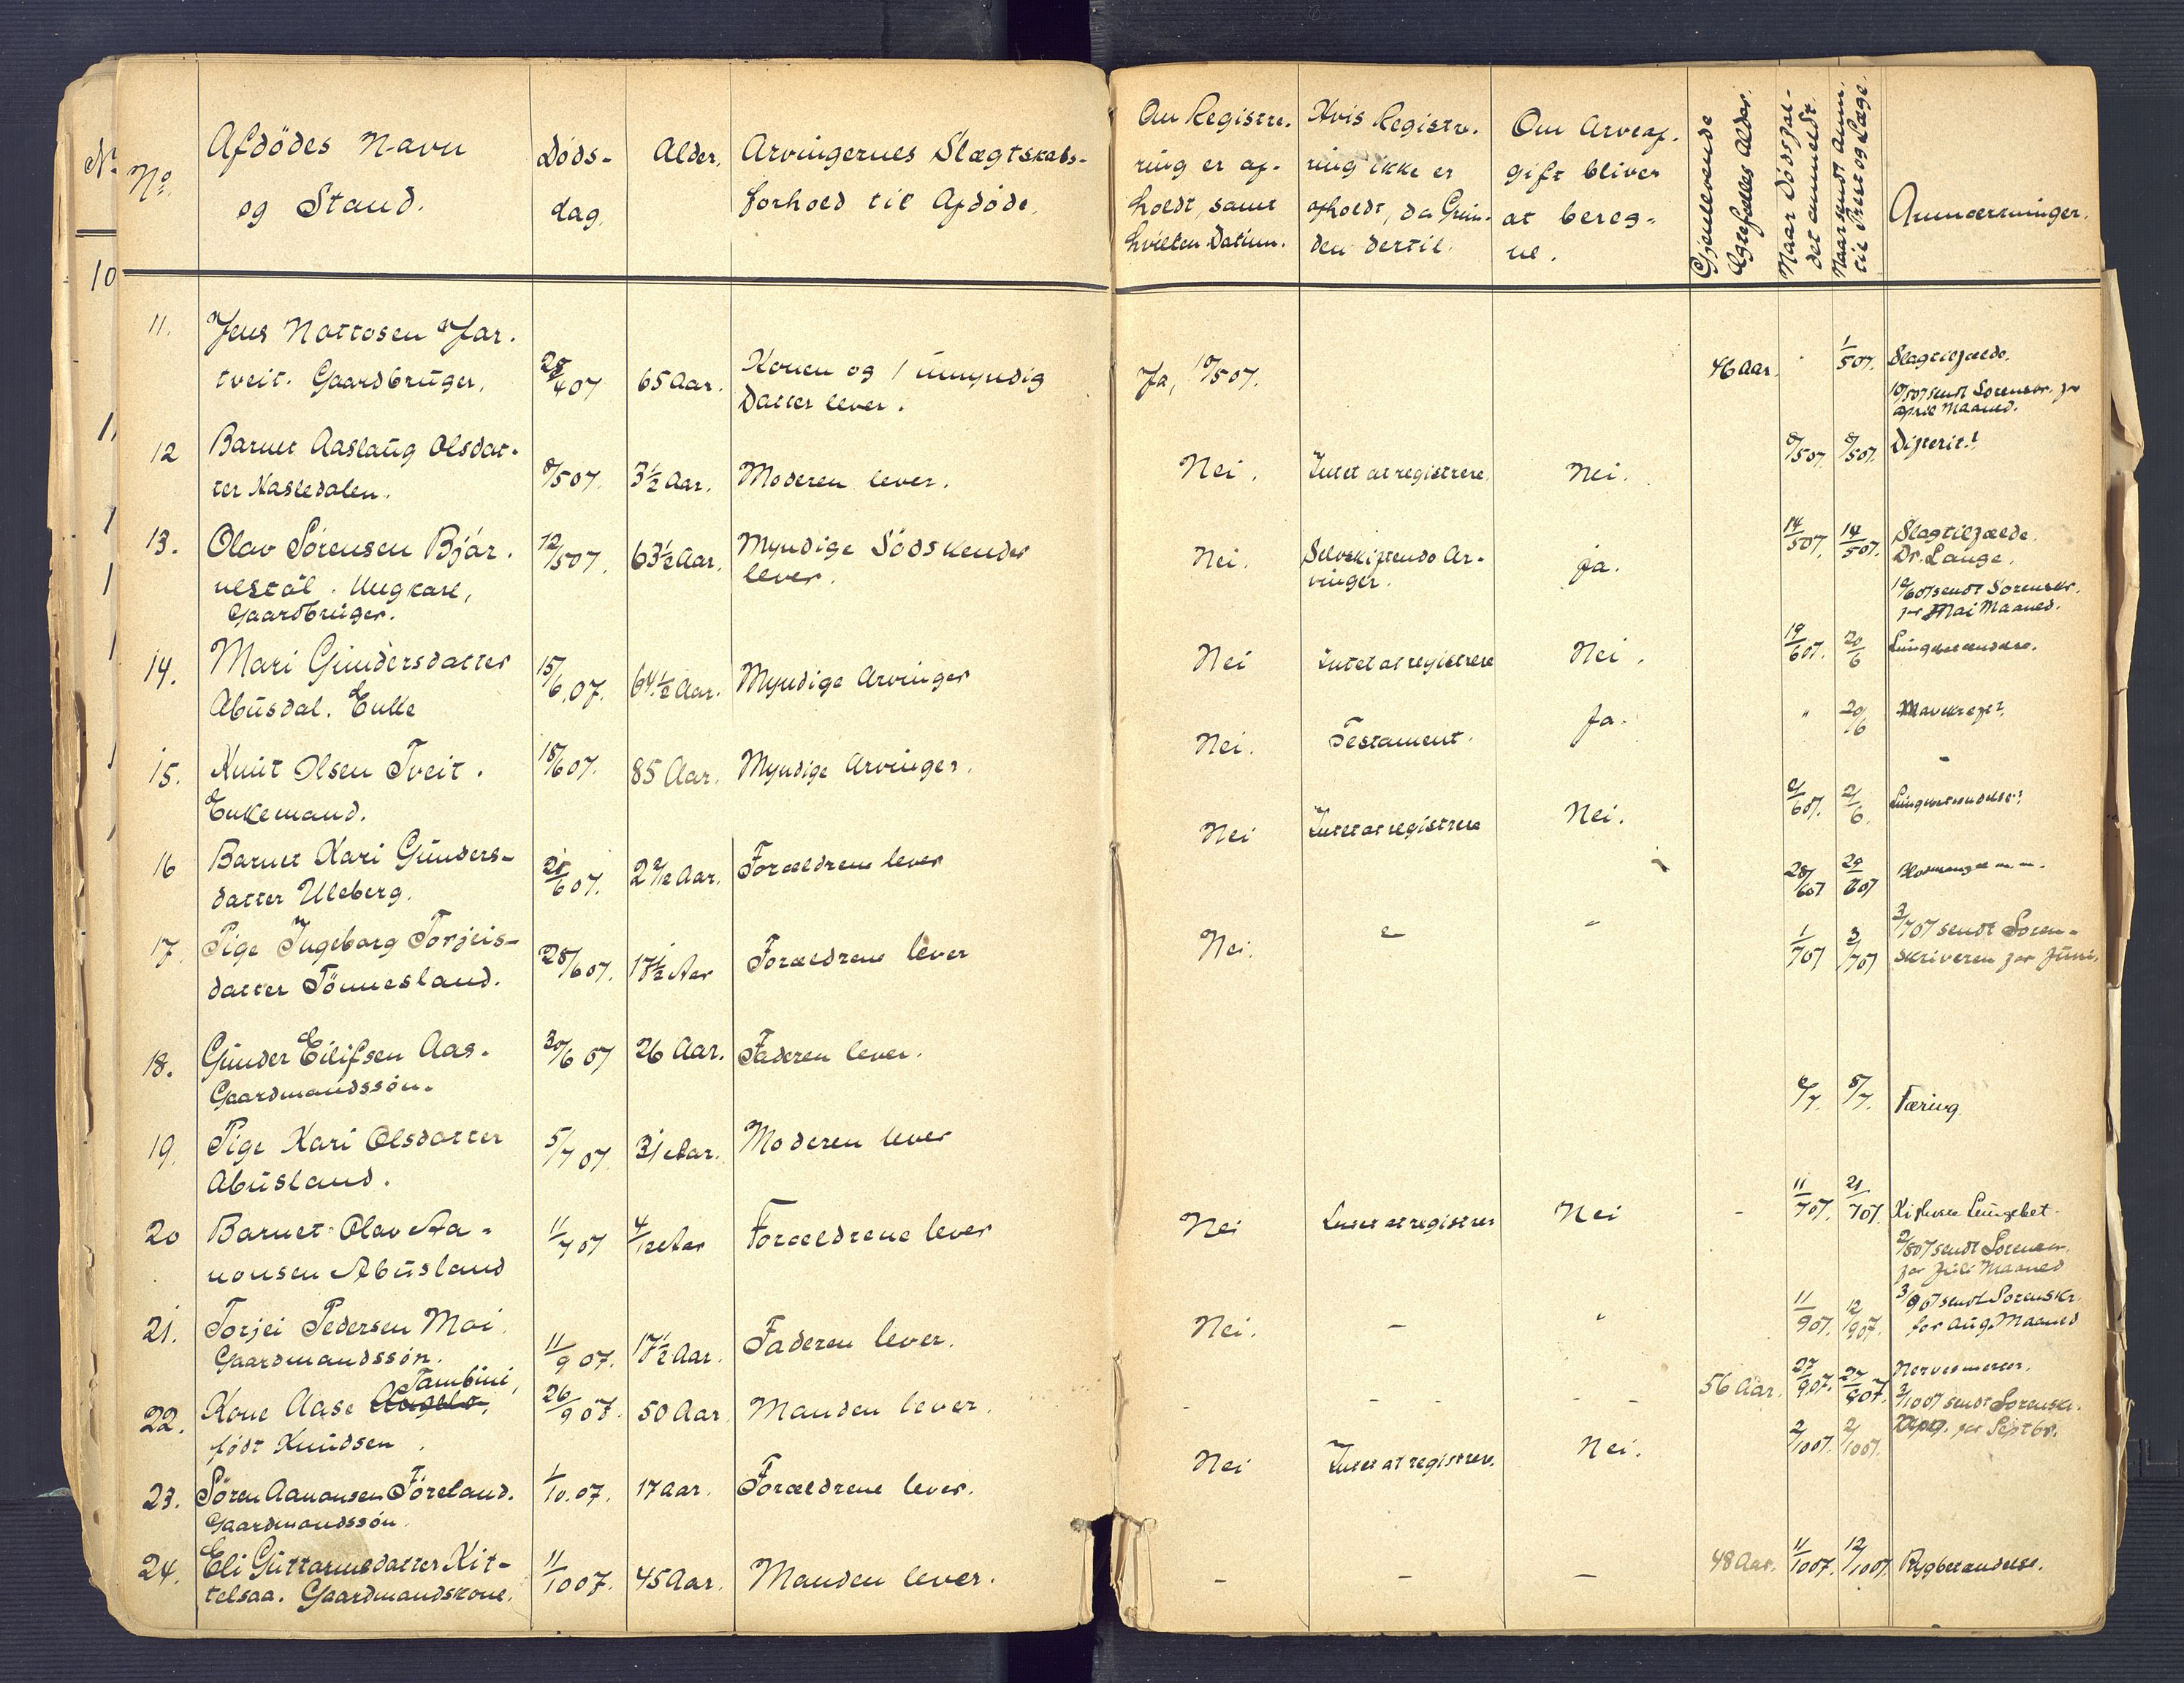 No. Afdödes Navn Döds- Alder. Arvingernes Slægtskabs-
og Stand. dag. forhold til Afdöde.
Om Registre- Hvis Registre- Om Arveaf-
ring er af- ring ikke er gift bliver
holdt, samt afholdt, da Grün- at bereg-
hvilken Datüm. den dertil. ne.
Gjenlevende
Egtefælles Alder.
Naar Dödsfal-
det anmeldt.
Naar sendt Anm.
til Præst og Læge.
Anmærkninger.
10
11. Jens Nottosen Jar-
tveit. Gaardbrüger. 28/4 07 65 Aar. Konen og 1 ümyndig
Datter lever. Ja, 10/5 07. 46 Aar. 1/5 07. Slagtilfælde.
10/5 07 sendt Sorenskr. for
April Maaned.
12 Barnet Aaslaüg Olsdat-
ter Hasledalen. 8/5 07. 3½ Aar. Moderen lever. Nei. Intet at registrere. Nei. 8/5 07. 8/5 07. Difterit.?
13. Olav Sörensen Björ-
nestöl. Ungkarl,
Gaardbrüger. 12/5 07. 63½ Aar. Myndige Södskender
lever. Nei. Selvskiftende Ar-
vinger. ja. 14/5 07. 14/5 07. Slagtilfælde.
Dr. Lange.
10/6 07 sendt Sorenskr.
for Mai Maaned.
14. Mari Gündersdatter
Abüsdal. Enke 15/6.07. 64½ Aar. Myndige Arvinger Nei Intet at registrere Nei. 19/6 07. 20/6 Lüngebetændelse.
15. Knüt Olsen Tveit.
Enkemand. 18/6 07. 85 Aar. Myndige Arvinger. Nei. Testament. Ja. " 20/6 Mavekræft?
16 Barnet Kari Günders-
datter Uleberg. 21/6 07. 2 Aar. Forældrene lever Nei Intet at registrere Nei. 21/6 07. 21/6. Lüngebetændelse?
17. Pige Ingeborg Torjeis-
datter Tönnesland. 28/6 07. 17½ Aar Forældrene lever Nei. " " 28/6 07 29/6 07
1/7 07 3/7 07 3/7 07 sendt Soren-
skriveren for Jüni.
18. Günder Eilifsen Aas.
Gaardmandssön. 30/6 07 26 Aar. Faderen lever.
19. Pige Kari Olsdatter
Abüsland. 5/7 07 31 Aar. Moderen lever 6/7. 8/7. Tæring
20 Barnet Olav Aa-
nonsen Abüsland 11/7 07 4/12 Aar Forældrene lever Nei Intet at registrer Nei - 11/7 07. 21/7 07. Kighoste Lüngebet.
2/8 07 sendt Sorenskr.
for Jüli Maaned
21. Torjei Pedersen Moi.
Gaardmandssön. 11/9 07. 17½ Aar. Faderen lever. Nei. - " 11/9 07. 12/9 07. 3/9 07 sendt Sorenskr.
for Aüg. Maaned
22. Kone Aase Tambini,
födt Knüdsen. 26/9 07. 50 Aar. Manden lever. - - - - - 56 Aar. 27/9 07. 27/9 07. Nervesmerter.
2/10 07 sendt Sorenskr.
for Septbr.
23. Sören AanonsenFöreland.
Gaardmandssön. 1/10.07. 17 Aar. Forældrene lever. Nei Intet at registrer. Nei. 2/10 07. 2/10 07.
24. Eli Güttormsdatter Kit-
telsaa. Gaardmandskone. 11/10 07. 45 Aar. Manden lever. - - - 48 Aar. 11/10 07. 12/10 07. Rygbetændelse.